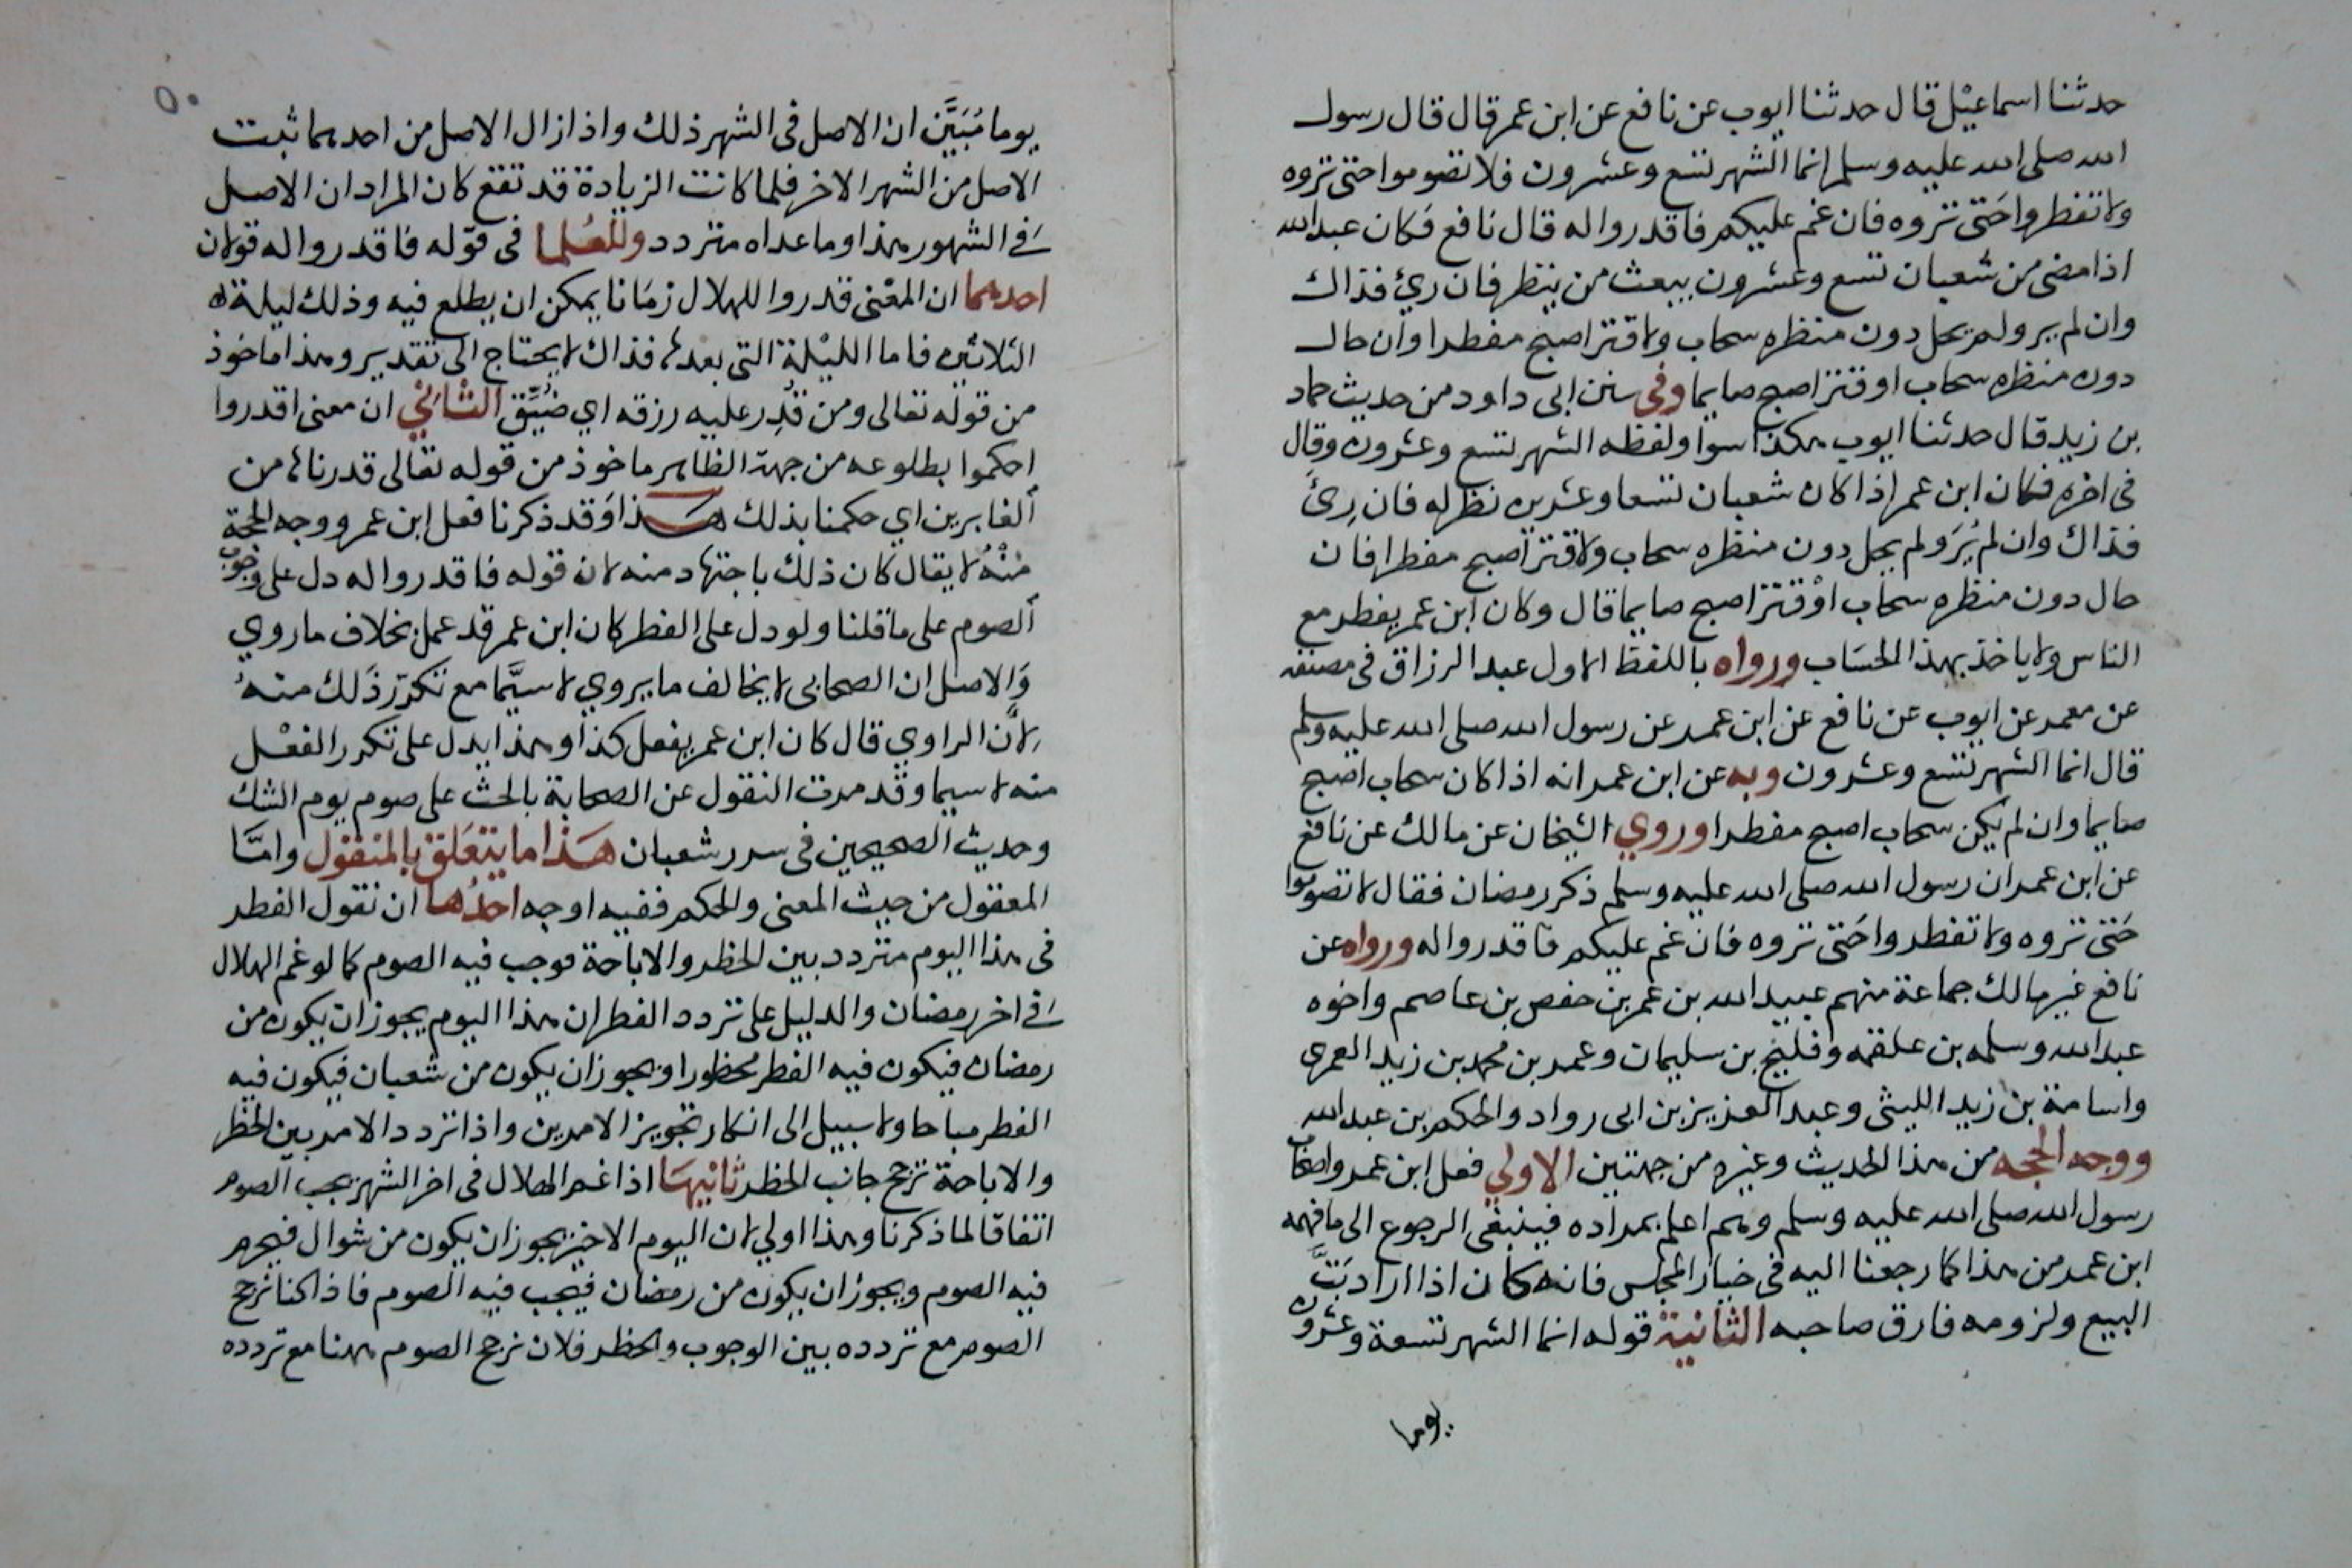 حدثنا اسماعيل قال حدثنا ايوب عن نافع عن ابن عمر قال قال رسول
الله صلى الله عليه وسلم انما الشهر تسع وعشرون فلا تصوموا حتى تروه
ولا تفطروا حتى تروه فان غم عليكم فاقدروا له قال نافع فكان عبد الله
اذا مضى من شعبان تسع وعشرون يبعث من ينظر فان رئ فذاك
وان لم ير ولم يحل دون منظره سحاب ولا قتر اصبح مفطرا وان حال
دون منظره سحاب او قتر اصبح صايما وفي سنن ابى داود من حديث حماد
بن زيد قال حدثنا ايوب هكذا سوا ولفظه الشهر تسع وعشرون وقال
فى اخره فكان ابن عمر اذا كان شعبان تسعا وعشرين نظر له فان رِئَ
فذاك وان لم يُرَ ولم يحل دون منظره سحاب ولا قتر اصبح مفطرا فان
حال دون منظره سحاب اوْ قتر اصبح صايما قال وكان ابن عمر يفطر مع
الناس ولا ياخذ بهذا الحسَاب ورواه باللفظ الاول عبد الرزاق فى مصنفه
عن معمر عن ايوب عن نافع عن ابن عمر عن رسول الله صلى الله عليه وسلم
قال انما الشهر تسع وعشرون وبه عن ابن عمر انه اذا كان سحاب اصبح
صايما وان لم يكن سحاب اصبح مفطرا وروي الشيخان عن مالك عن نافع
عن ابن عمر ان رسول الله صلى الله عليه وسلم ذكر رمضان فقال لا تصوموا
حَتى تروه ولا تفطروا حَتى تروه فان غم عليكم فاقدروا له ورواه عن
نافع غير مالك جماعة منهم عبيد الله بن عمر بن حفص بن عاصم واخوه
عبد الله وسلمه بن علقمه وفليح بن سليمان وعمر بن محمد بن زيد العمرى
واسامة بن زيد الليثى وعبد العزيز بن ابى رواد والحكم بن عبد الله
ووجه الحجه من هذا الحديث وغيره من جهتين الاولي فعل ابن عمر واصحاب
رسول الله صلى الله عليه وسلم وهم اعلم بمراده فينبغى الرجوع الى ما فهمه
ابن عمر من هذا كما رجعنا اليه فى خيار المجلس فانه كان اذا اراد بَتَّ
البيع ولزومه فارق صاحبه الثانية قوله انما الشهر تسعة وعشرون
يوما
٥٠
يوما مُبَيَّن ان الاصل فى الشهر ذلك واذا زال الاصل من احدهما ثبت
الاصل من الشهر الاخر فلما كانت الزيادة قد تقع كان المراد ان الاصل
في الشهور هذا وما عداه متردد وللعُلما فى قوّله فاقدروا له قولان
احدهما ان المعْنى قدروا للهلال زمَانا يمكن ان يطلع فيه وذلك ليلة
الثلاثين فاما الليْلة التى بعدها فذاك لا يحتاج الى تقدير وهذا ماخوذ
من قوله تعالى ومن قُدِر عليه رزقه اي ضُيِّق الثاني ان معنى اقدروا
احكموا بطلوعه من جهة الظاهر ماخوذ من قوله تعالى قدرناها من
الغابرين اي حكمنا بذلك هذا وقد ذكرنا فعل ابن عمر ووجه الحجة
مْنهُ لا يقال كان ذلك باجتهاد منه لان قوله فاقدروا له دل على وجوب
الصوم على ما قلنا ولو دل على الفطر كان ابن عمر قد عمل بخلاف ما روي
وَالاصل ان الصحابى لا يخالف ما يروي لا سيَّما مع تكرّر ذَلك منهُ
لأنَّ الراوي قال كان ابن عمر يفعل كذا وهذا يدل على تكرر الفعْل
منه لا سيما وقد مرت النقول عن الصحابة بالحث على صوم يوم الشك
وحديث الصحيحين فى سرر شعبان هَذا ما يتعَلق بالمنقول وامَّا
المعقول من حيث المعنى والحكم ففيه اوجه احدُها ان نقول الفطر
فى هذا اليوم متردد بين الحظر والاباحة فوجب فيه الصوم كما لو غم الهلال
في اخر رمضان والدليل على تردد الفطر ان هذا اليوم يجوز ان يكون من
رمضان فيكون فيه الفطر محظورا ويجوز ان يكون من شعبان فيكون فيه
الفطر مباحا ولا سبيل الى انكار تجويز الامرين واذا تردد الامر بين الحظر
والاباحة ترجح جانب الحظر ثانيهَا اذا غم الهلال فى اخر الشهر يجب الصوم
اتفاقا لما ذكرنا وهذا اولي لان اليوم الاخير يجوز ان يكون من شوال فيحرم
فيه الصوم ويجوز ان يكون من رمضان فيجب فيه الصوم فاذا كنا نرجح
الصوم مع تردده بين الوجوب والحظر فلان نرجح الصوم ههنا مع تردده